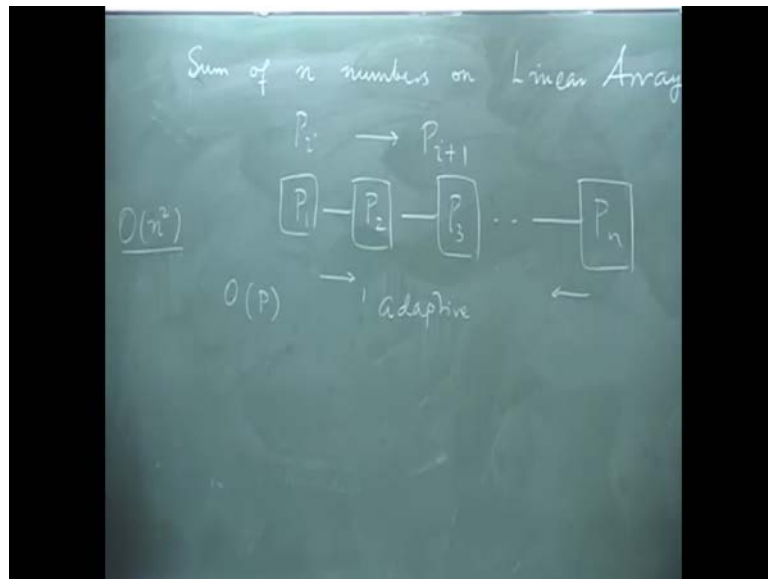 Sum of n numbers on Linear Array
P_i → P_{i+1}
P_1 — P_2 — P_3 ·· — P_n
O(n²)
→ ←
O(P) adaptive